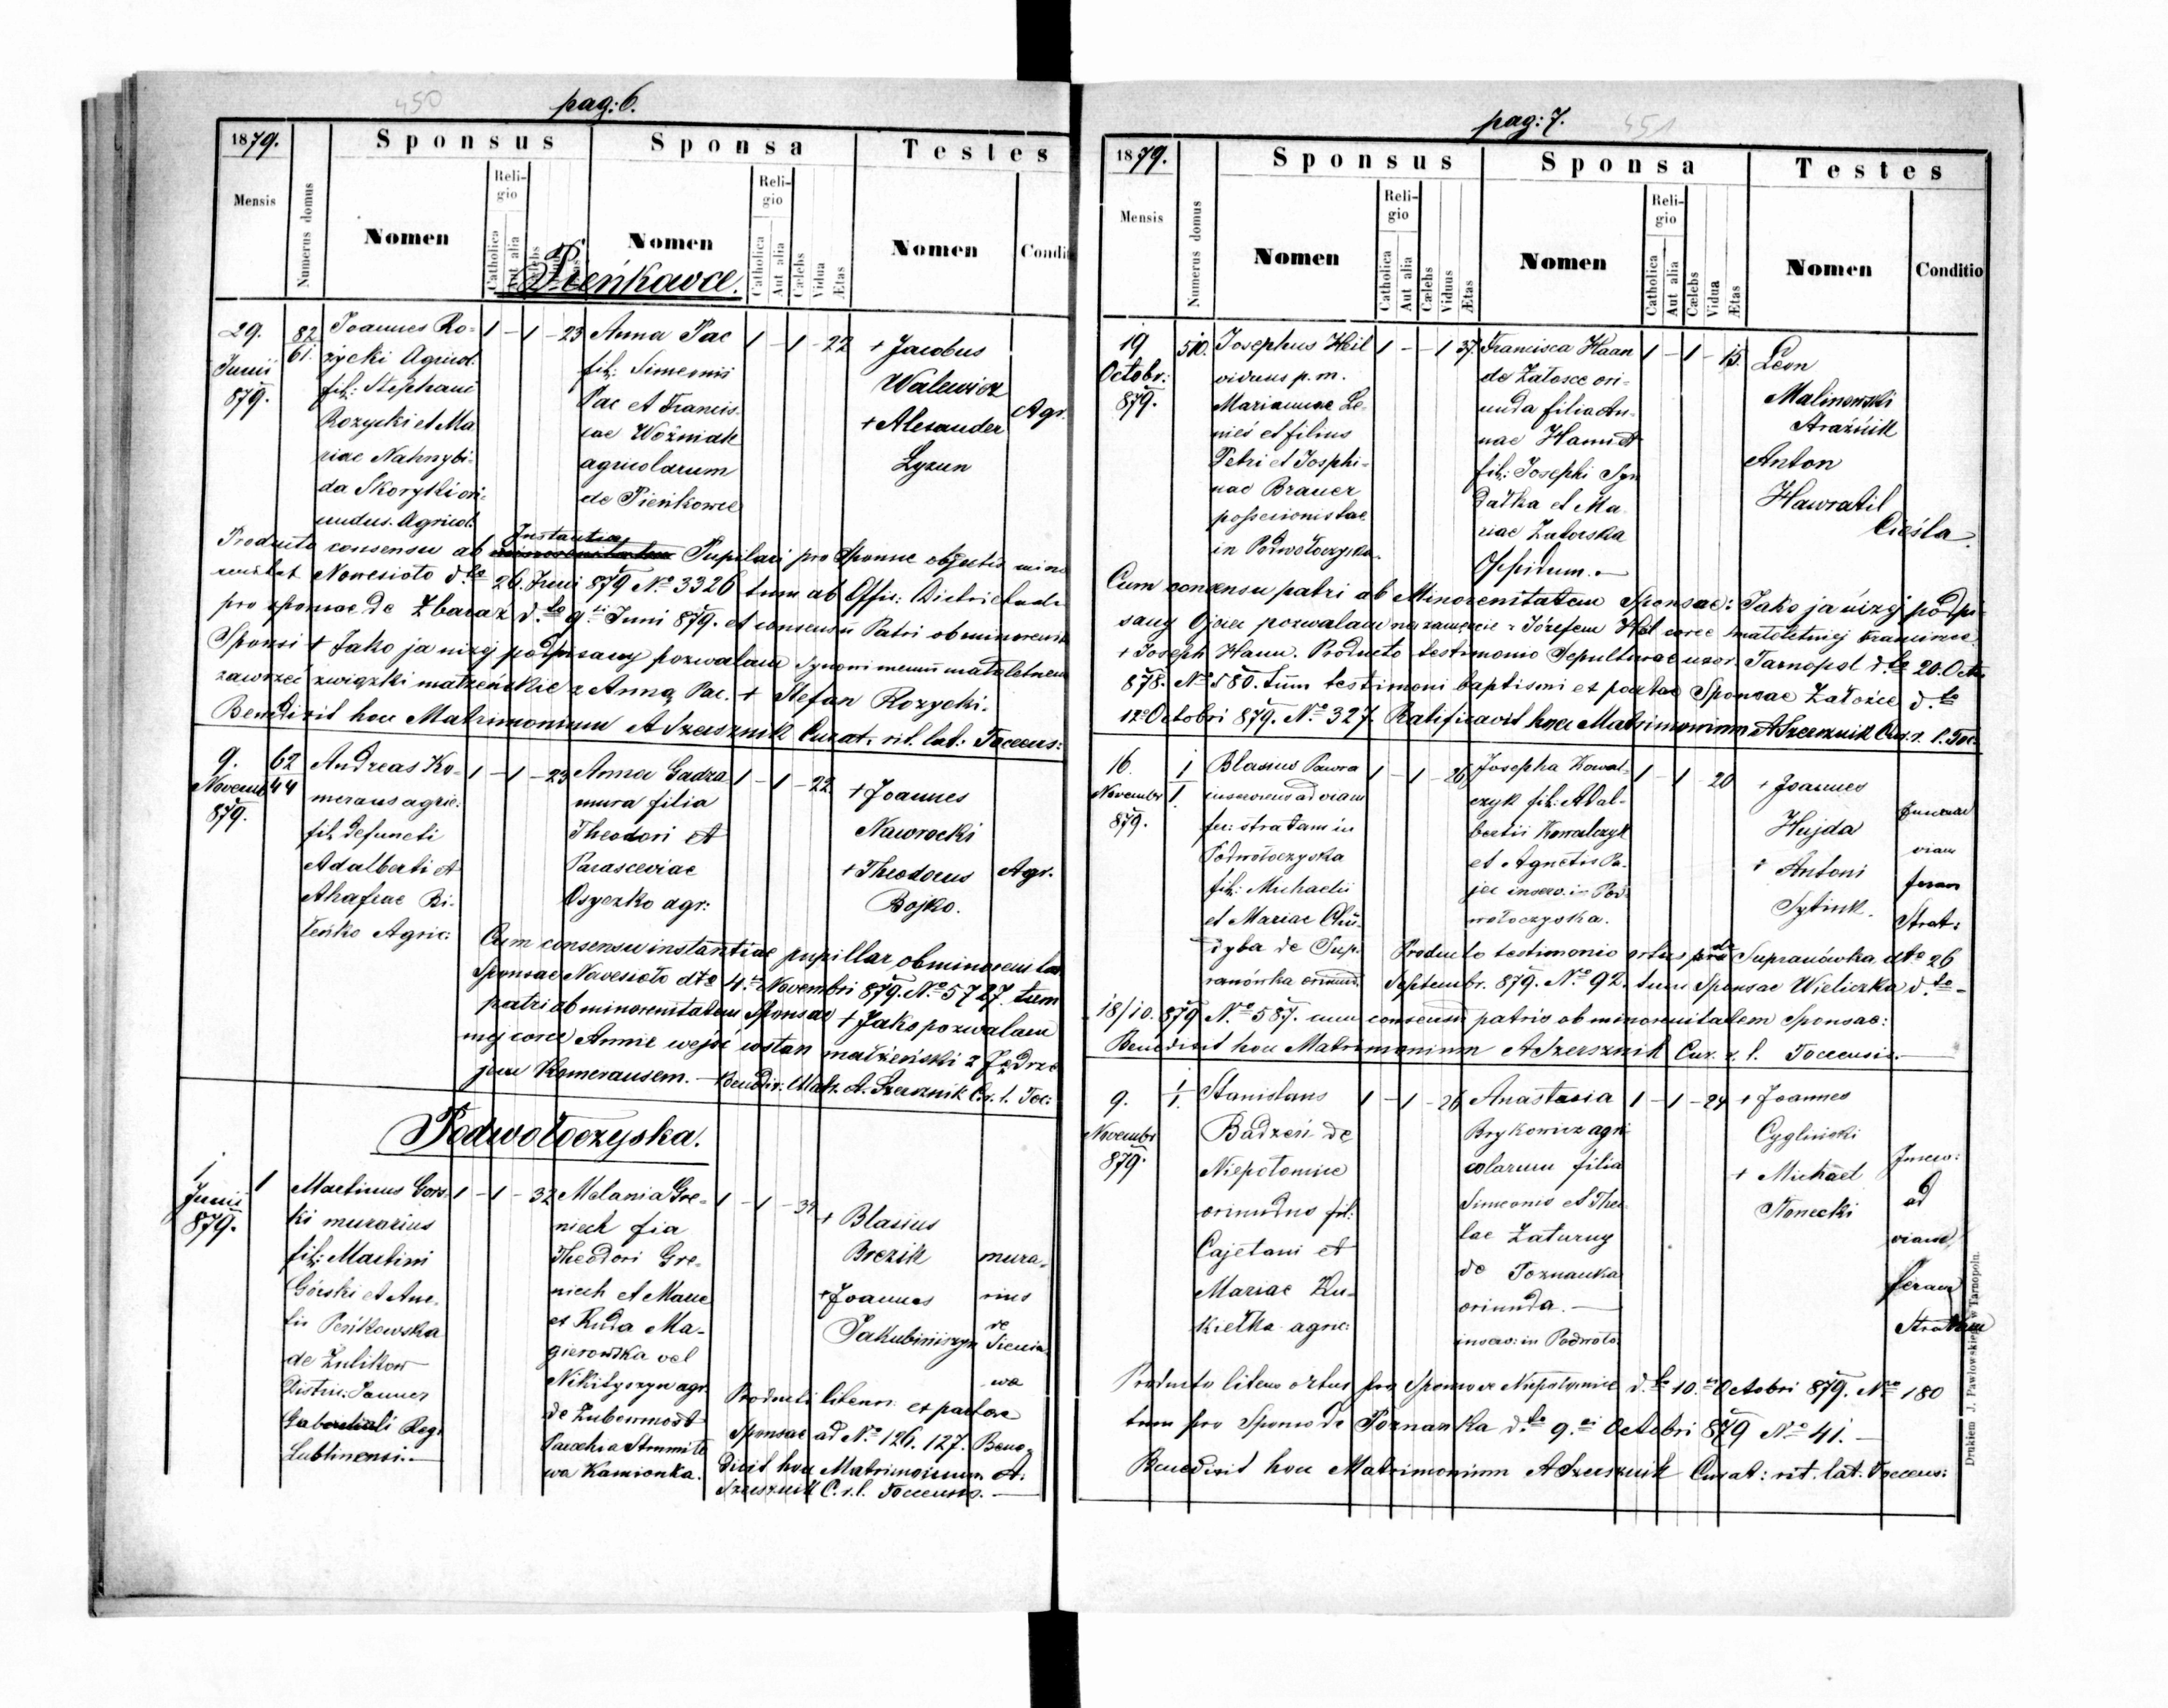 450
pag: 6.
1879.
Sponsus
Sponsa
Testes
Mensis
Numerus domus
Nomen
Religio
Catholica
Aut alia
Nomen
Religio
Catholica
Aut alia
Cælebs
Vidua
Ætas
Nomen
Condi
Pieńkowce.
29.
Junii
879.
82
61.
Joannes Ro=
życki Agricol.
fil: Stephani
Rozycki et Ma
riae Nahnybi-
da Skoryki ori-
undus. Agricol.
1 - 1 - 23
Anna Pac
fil: Simeonis
Pac et Francis.
cae Woźniak
agricolarum
de Pieńkowce
1 - 1 - 22
+ Jacobus
Walewicz
+ Alexander
Łyzun
Agr.
Producto consensu ab Instantiae Pupilari pro Sponso objectis mino
renitat Nowesioło d.to 26. Juni 879 No 3326 tum ab Offic: Districtuali
pro sponsae de Zbaraz d.to 9ti Juni 879. et consensu Patri ob minorenit
Sponsi + Jako ja niżej podpisany pozwalam Synowi memu małoletnem
zawrzeć związki małżeńskie z Anną Pac. + Stefan Rozycki.
Benedixit hoc Matrimonium A Szersznik Curat. rit. lat: Toccens:
9.
Novemb
879.
62
44
Andreas Ko-
meraus agric.
fil. defuncti
Adalberti et
Ahafiae Bi-
leńko Agric:
1 - 1 - 23
Anna Gadza
mura filia
Theodori et
Parasceviae
Osyczko agr:
1 - 1 - 22
+ Joannes
Nawrocki
+ Theodorus
Bojko.
Agr.
Cum consensu instantiae pupillar ob minoreni tat
Sponsae Nowesioło dto 4.ti Novembri 879. No 5727. tum
patri ob minorenitatem Sponsae + Jako pozwalam
mej corce Annie wejść w stan małżeński z Jędrze
jem Komerausem. - Benedix. Matr. A. Szersznik C. r. l. Toc:
Podwołoczyska.
1
Junii
879.
1
Martinus Gors
ki murarius
fil: Martini
Górski et Ane.
lis Peńkowska
de Żulikow
Distric. Janner
Reg.
Lublinensi.-
1 - 1 - 32
Melania Gre-
niech fia
Theodori Gre-
niech et Mariae
et Ruda Ma-
gierowska vel
Nikityszyn agr.
de Zubowmost
Parochia Strumito
wa Kamionka.
+ Blasius
Brezik
+ Joannes
Jakubiniszyn
mura-
rius
de
Sienia-
wa
Producti literis et parte
Sponsae ad No 126. 127. Bene-
dixit hoc Matrimonium A.
Szersznik C. r. l. Toccensis. -
pag: 7.
451
1879.
Sponsus
Sponsa
Testes
Mensis
Numerus domus
Nomen
Religio
Catholica
Aut alia
Cælebs
Viduus
Ætas
Nomen
Religio
Catholica
Aut alia
Cælebs
Vidua
Ætas
Nomen
Conditio
19
Octobr:
879.
510.
Josephus Hil
viduus p. m.
Mariannae Le-
nieś et filius
Petri et Josphi-
nae Brauer
possesionistae
in Podwołoczyska.
1 - - 1 37.
Francisca Haan
de Załosce ori-
unda filia An-
nae Hann et
fil: Josephi Syn
datka et Ma
riae Zatorska
Oppidum. -
1 - 1 - 15.
Leon
Malinowski
Strażnik
Anton
Hawratil
Cieśla.
Cum consensu patri ob Minorenitatem Sponsae: Jako ja niżej podpi
sany Ojciec pozwalam na zamęscie z Józefem Hil corce małoletniej Francisce
+ Joseph Hann. Producto testimonio Sepulturae uxor. Tarnopol d.to 20. Octo
878. No 580. tum testimoni baptismi et partae Sponsae Załośce d.to
12o Octobri 879. No 327. Ratificavit hoc Matrimonium A Szersznik Cur. r. l. Toc.
16.
Novembr
879.
1
1.
Blasius Pawra
inserviens ad viam
fer: stratam in
Podwołoczyska
fil: Michaelis
et Mariae Chu
dyba de Sup.
ranówka oriund.
1 - 1 - 26
Josepha Kowal-
czyk fil: Adal-
bertii Kowalczyk
et Agnetis Pa-
jec inserv. in Pod-
wołoczyska.
1 - 1 20
+ Joannes
Hujda
+ Antoni
Sytink.
viam
feram
Strat:
Producto testimonio ortus pro de Supranówka dto 26
Septembr. 879. No 92. tum Sponsae Wieliczka d.to -
18/10. 879 No 587. cum consensu patris ob minorenitatem Sponsae:
Benedixit hoc Matrimonium A Szersznik Cur. r. l. Toccensis. -
9.
Novembr
879.
1
1.
Stanislaus
Badzeń de
Niepołomice
oriundus fil:
Cajetani et
Mariae Ku-
kiełka agric:
1 - 1 - 26
Anastasia
Brykowicz agri
colarum filia
Simeonis et The
lae Zaturny
de Poznanka
oriunda. -
inserv: in Podwoło.
1 - 1 - 24
+ Joannes
Cygliński
+ Michael
Słonecki
Inserv:
ad
viam
feram
Stratam
Producto literis ortus pro Sponso ex Niepołomice d.to 10.ti Octobri 879. No 180
tum pro Sponso de Poznanka d.to 9.ti Octobri 879 No 41. -
Benedixit hoc Matrimonium A Szersznik Curat: rit. lat. Toccens:
Drukiem J. Pawłowskiego w Tarnopolu.